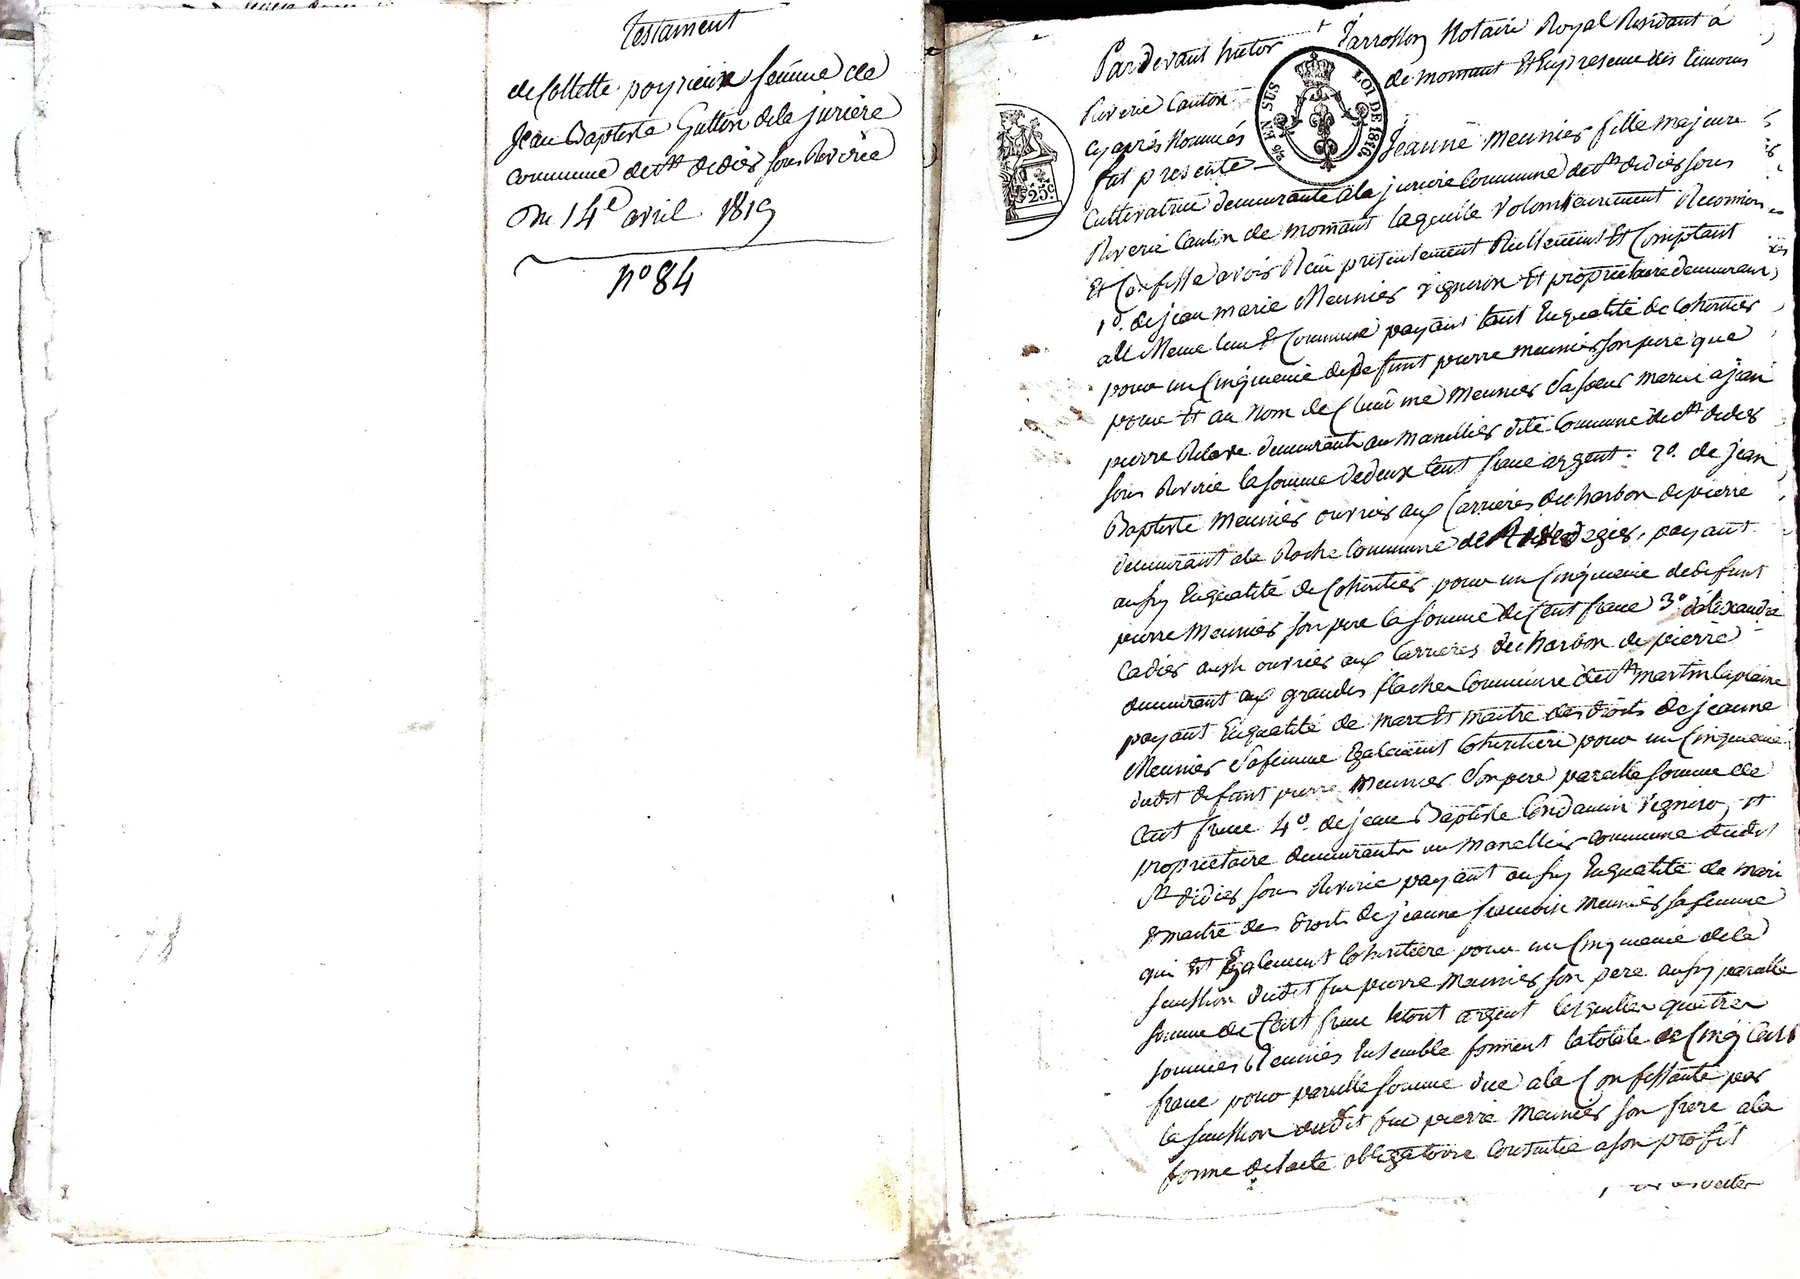 Testament
de Collette poyrieux femme de
Jean Baptiste Gutton de la juriere
commune de st didier sous Riverie
Du 14e avril 1819
n° 84
Pardevant Tarrosson Notaire Royal Residant à
Riverie Canton de mornant Et En presence des temoins
cy après Nommés
fut presente Jeanne Meunier fille majeure
Cultivatrice demeurante a la juriere Commune de st didier sous
Riverie Canton de mornant laquelle volontairement Reconnoit
Et Confesse avoir Recu presentement Réellement Et Comptant
1°. de jean marie Meunier vigneron Et proprietaire demeurant
au Meme lieu Et Commune payant tant En qualité de Cohéritier
pour un Cinquieme de defunt pierre meunier son pere que
pour Et au Nom de Meunier sa soeur mariée a jean
pierre demeurante au Manellier dite Commune de st didier
sous Riverie la somme de deux Cent franc argent. 2°. de jean
Baptiste Meunier ouvrier aux Carrieres de charbon de pierre
demeurant a la Roche Commune de payant
aussy En qualité de Cohéritier pour un Cinquieme de defunt
pierre Meunier son pere la somme de Cent franc 3° d'alexandre
Cadier aussi ouvrier aux Carrieres de charbon de pierre
demeurant aux grandes flaches Commune de st martin la plaine
payant En qualité de mari Et maitre des droits de jeanne
Meunier sa femme Egalement Cohéritiere pour un Cinquieme
dudit defunt pierre Meunier son pere pareille somme de
Cent franc 4°. de jean Baptiste Condamin vigneron et
proprietaire demeurant au Manellier Commune dudit
st didier sous Riverie payant aussy En qualité de mari
& maitre des droits de jeanne francoise Meunier sa femme
qui Est Egalement Cohéritiere pour un Cinquieme de la
sucession dudit feu pierre Meunier son pere aussy pareille
somme de Cent franc le tout argent lesquelles quatres
sommes Reunies Ensemble forment la totale de Cinq Cents
franc pour pareille somme due a la Confessante par
la sucession dudit feu pierre Meunier son frere a la
forme de l'acte obligatoire Consentie a son profit
LOI DE 1816
EN SUS
25c.